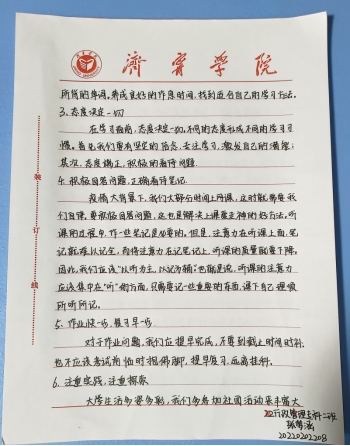 济宁学院
所背的单词。养成良好的作息时间，找到适合自己的学习方法。
3、态度决定一切
在学习面前，态度决定一切。不同的态度形成不同的学习习
惯。首先我们要有坚定的信念，专注学习，激发自己的潜能；
其次，态度端正，积极的看待问题。
4、积极回答问题，正确看待笔记
疫情大背景下，我们大部分时间上网课，这时就需要我
们自律，要积极回答问题，这也是解决上课走神的好方法。听
课的过程中，作一些笔记是必要的。但是，注意力在听课上面，笔
记就难以记全，而将注意力在记笔记上，听课的质量就要下降。
因此，我们应该“以听为主，以记为辅”也就是说，听课的注意力
应该集中在“听”的方面，只需要记一些重要的东西，课下自己理顺
所听所记。
5、作业快一步，复习早一步
对于作业问题，我们应提早完成，不要到截止时间时补
也不应该考试前临时抱佛脚，提早复习，远离挂科。
6、注重实践，注重探索
大学生活多姿多彩，我们多参加社团活动来丰富大
行政管理专科二班
20220202208
装
订
线